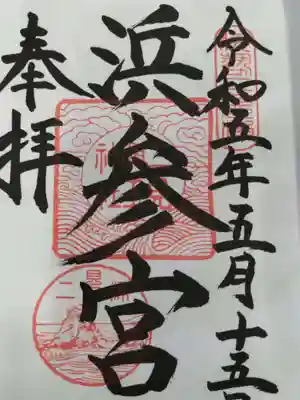 令和五年五月十五日
浜参宮
奉拝